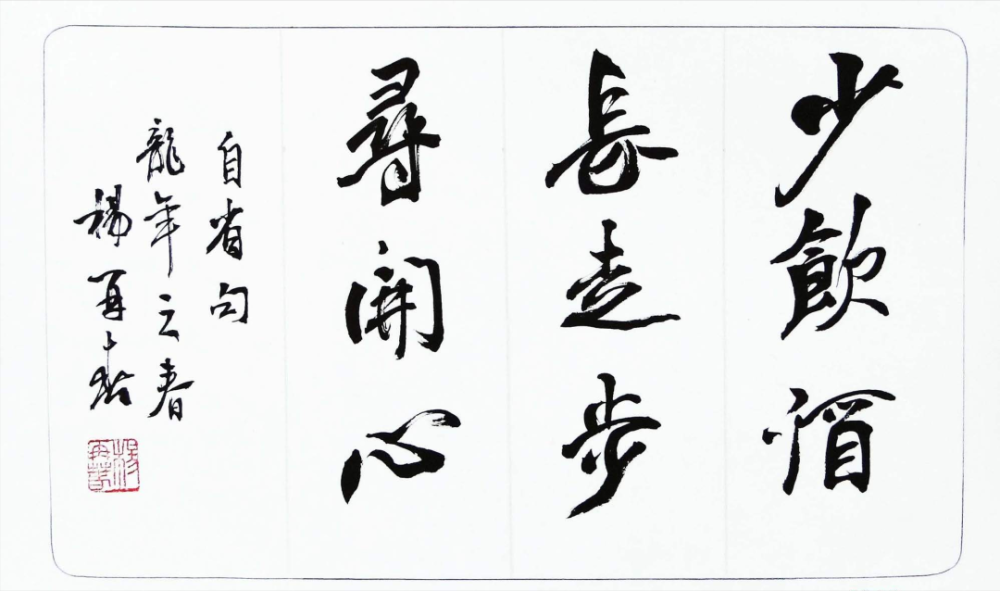 少飲酒
長走步
尋開心
自省句
龍年之春
楊再春